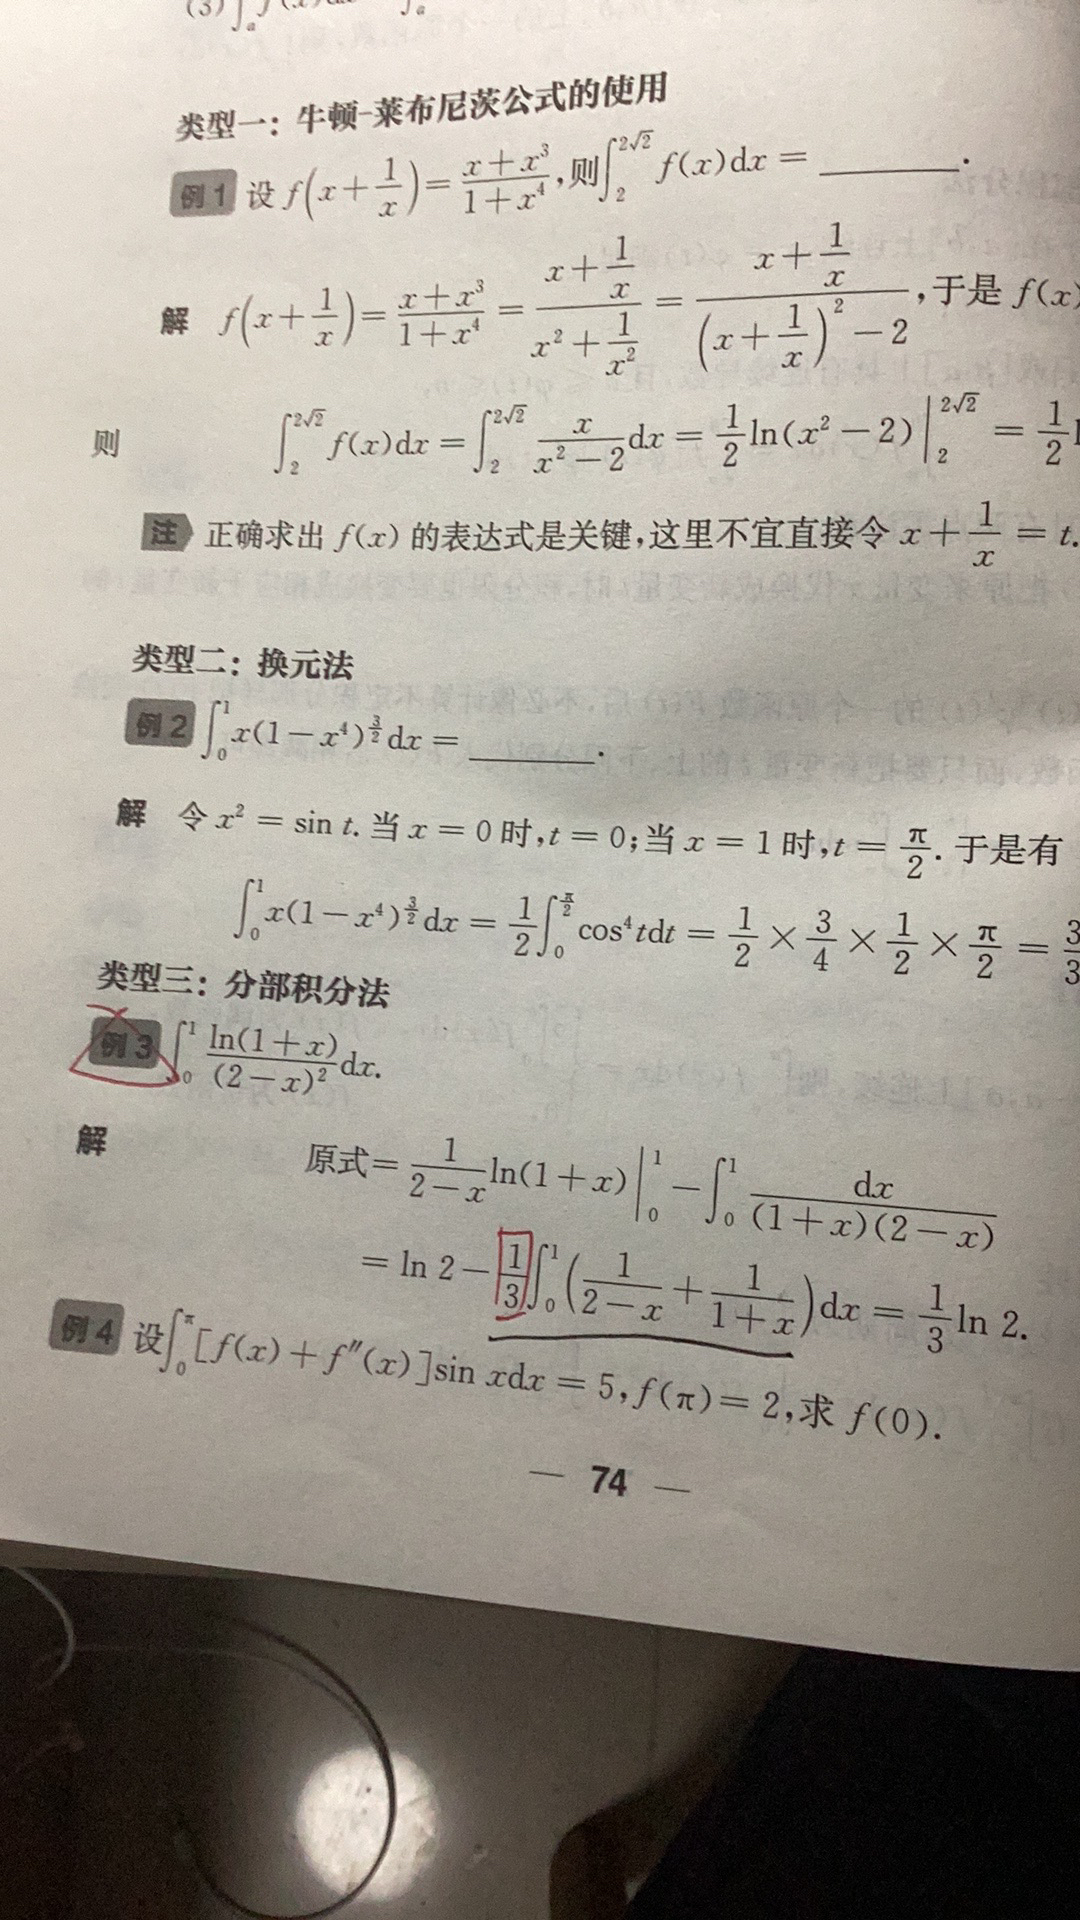 类型一：牛顿-莱布尼茨公式的使用
例1 设 f(x+1/x)=(x+x³)/(1+x⁴),则∫₂^{2√2} f(x)dx=______.
解 f(x+1/x)=(x+x³)/(1+x⁴)=(x+1/x)/(x²+1/x²)=(x+1/x)/((x+1/x)²-2),于是 f(x)
则 ∫₂^{2√2} f(x)dx=∫₂^{2√2} x/(x²-2)dx=1/2 ln(x²-2)|₂^{2√2}=1/2
注 正确求出 f(x) 的表达式是关键,这里不宜直接令 x+1/x=t.
类型二：换元法
例2 ∫₀¹x(1-x⁴)^{3/2}dx=______.
解 令 x²=sin t.当 x=0 时,t=0;当 x=1 时,t=π/2.于是有
∫₀¹x(1-x⁴)^{3/2}dx=1/2∫₀^{π/2}cos⁴tdt=1/2×3/4×1/2×π/2=
类型三：分部积分法
例3 ∫₀¹ ln(1+x)/(2-x)² dx.
解 原式=1/(2-x) ln(1+x)|₀¹-∫₀¹ dx/((1+x)(2-x))
=ln 2-1/3∫₀¹(1/(2-x)+1/(1+x))dx=1/3 ln 2.
例4 设∫₀^π[f(x)+f″(x)]sin xdx=5,f(π)=2,求 f(0).
— 74 —